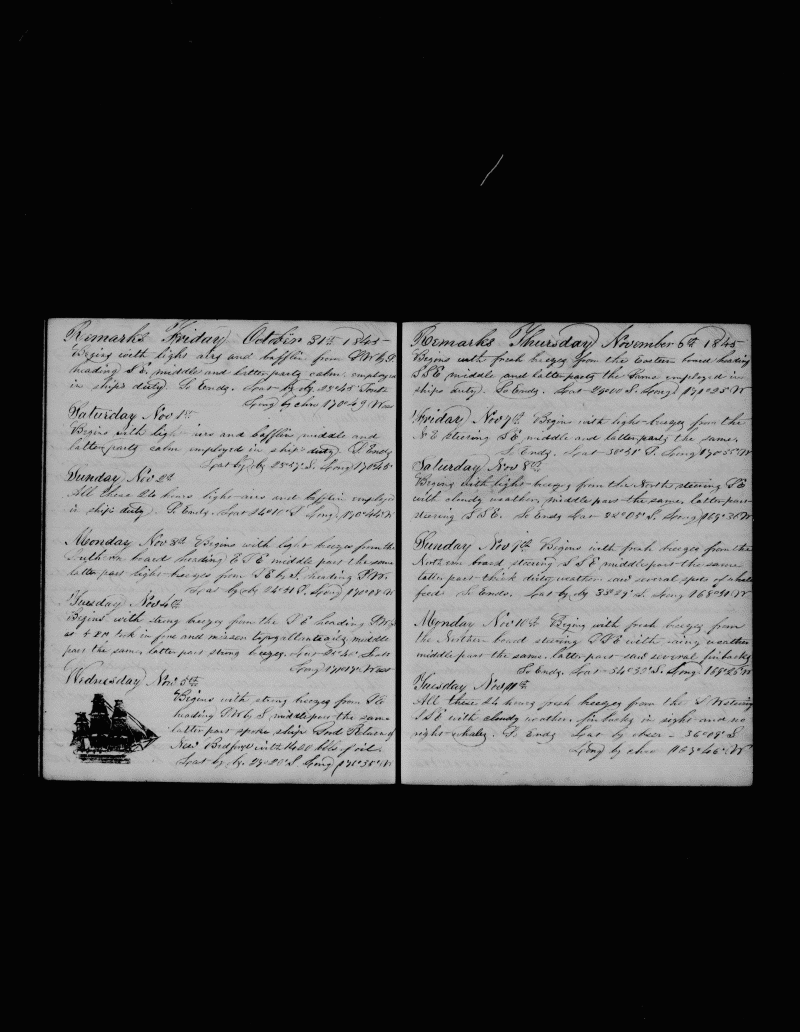 Remarks Friday October 31st 1845
Begins with light airs and bafflin from S W by S
heading S E. middle and latter party calm. employed
in ships duty So Ends. Lat by ob 23°45' South
Long by chro 170°49' West
Saturday Nov 1st
Begins with light airs and bafflin middle and
latter party calm employed in ships duty So Ends
Lat by ob 23°57' S. Long 170°45'
Sunday Nov 2d
All these 24 hours light airs and bafflin employed
in ships duty. So Ends. Lat 24°10' S Long 170°46' W
Monday Nov 3d Begins with light breezes from the
Southern board heading E S E middle part the same
latter part light breezes from S E by S. heading S W.
Lat by ob 24°21' S. Long 171°08' W
Tuesday Nov 4th
Begins with strong breezes from the S E heading S W by
took in fore and mizzen topgallantsails middle
part the same, latter part strong breezes. Lat 25°40' South
Long 171°17' West
Wednesday Nov 5th
Begins with strong breezes from S E
heading S W by S, middle part the same
latter part spoke ship Good Return of
New Bedford with 1400 bbls of oil.
Lat by ob. 27°20' S Long 171°35' W
Remarks Thursday November 6th 1845
Begins with fresh breezes from the Eastern board heading
S S E middle and latter party the same employed in
ships duty. So Ends. Lat 29°00' S. Long 171°25' W
Friday Nov 7th Begins with light breezes from the
N E steering S E middle and latter party the same.
So Ends. Lat 30°31' S. Long 170°55' W
Saturday Nov 8th
Begins with light breezes from the North steering S E
with cloudy weather, middle part the same, latter part
steering S S E. So Ends Lat 32°05' S. Long 169°35' W
Sunday Nov 9th Begins with fresh breezes from the
Northern board steering S S E middle part the same
latter part thick dirty weather said several spots of whale
feed. So Ends. Lat by ob 33°29' S. Long 168°31' W
Monday Nov 10th Begins with fresh breezes from
the Northern board steering S S E with rainy weather
middle part the same, latter part said several finbacks
So Ends. Lat 34°33' S. Long 168°25' W
Tuesday Nov 11th
All these 24 hours fresh breezes from the S W steering
S S E with cloudy weather. finbacks in sight and no
right whales. So Ends Lat by obser - 36°09' S
Long by chro 163°46' W